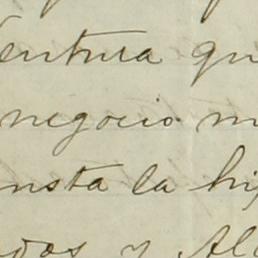 Ventura qu
negocio m
nsta la hi
dos y Al